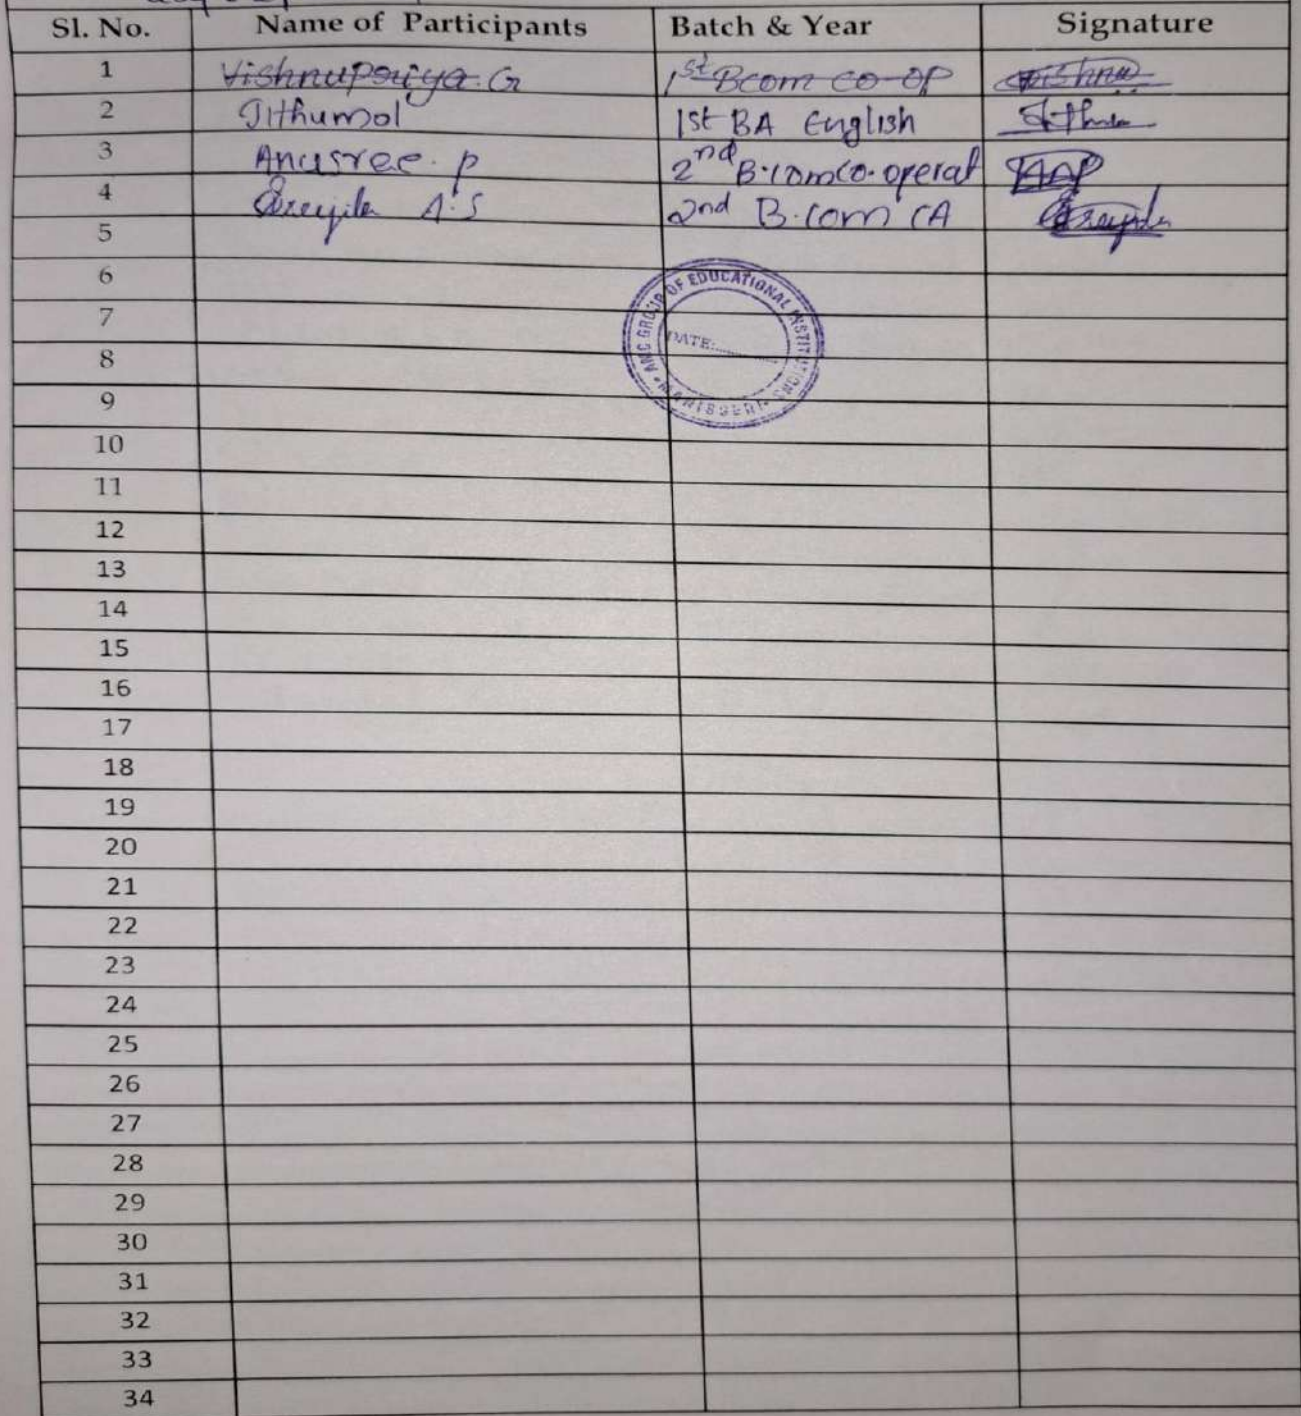 Sl. No. Name of Participants Batch & Year Signature
1 Vishnupriya. G 1st Bcom co-op Vishnu
2 Jithumol 1st BA English
3 Anusree. p 2nd B.com co.operat
4 A.S 2nd B.com CA
5
6
7
8
9
10
11
12
13
14
15
16
17
18
19
20
21
22
23
24
25
26
27
28
29
30
31
32
33
34
ANC GROUP OF EDUCATIONAL INSTITUTIONS
DATE: